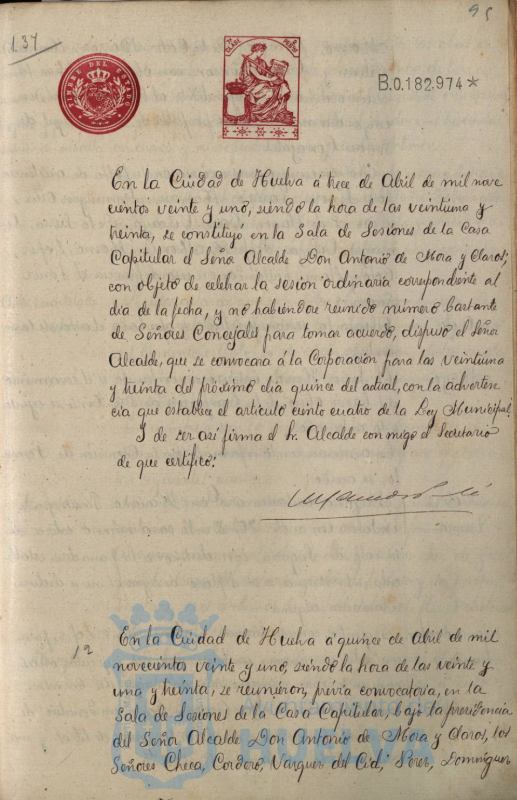 95
137
TIMBRE DEL ESTADO
CLASE
B.0.182.974*
En la Ciudad de Huelva á trece de Abril de mil nove
cientos veinte y uno, siendo la hora de las veintiuna y
treinta, se constituyó en la Sala de Sesiones de la Casa
Capitular el Señor Alcalde Don Antonio de Mora y Claros;
con objeto de celebrar la sesion ordinaria correspondiente al
dia de la fecha, y no habiéndose reunido número bastante
de Señores Concejales para tomar acuerdo, dispuso el Señor
Alcalde, que se convocara á la Corporación para las veintiuna
y treinta del próximo dia quince del actual, con la adverten
cia que establece el artículo ciento cuatro de la Ley Municipal.
Y de ser así firma el Sr. Alcalde con migo el Secretario
de que certifico:
En la Ciudad de Huelva á quince de Abril de mil
novecientos veinte y uno, siendo la hora de las veinte y
una y treinta, se reunieron, prévia convocatoria, en la
Sala de Sesiones de la Casa Capitular, bajo la presidencia
del Señor Alcalde Don Antonio de Mora y Claros, los
Señores Checa, Cordero, Vazquez del Cid, Perez, Dominguez
HUELVA